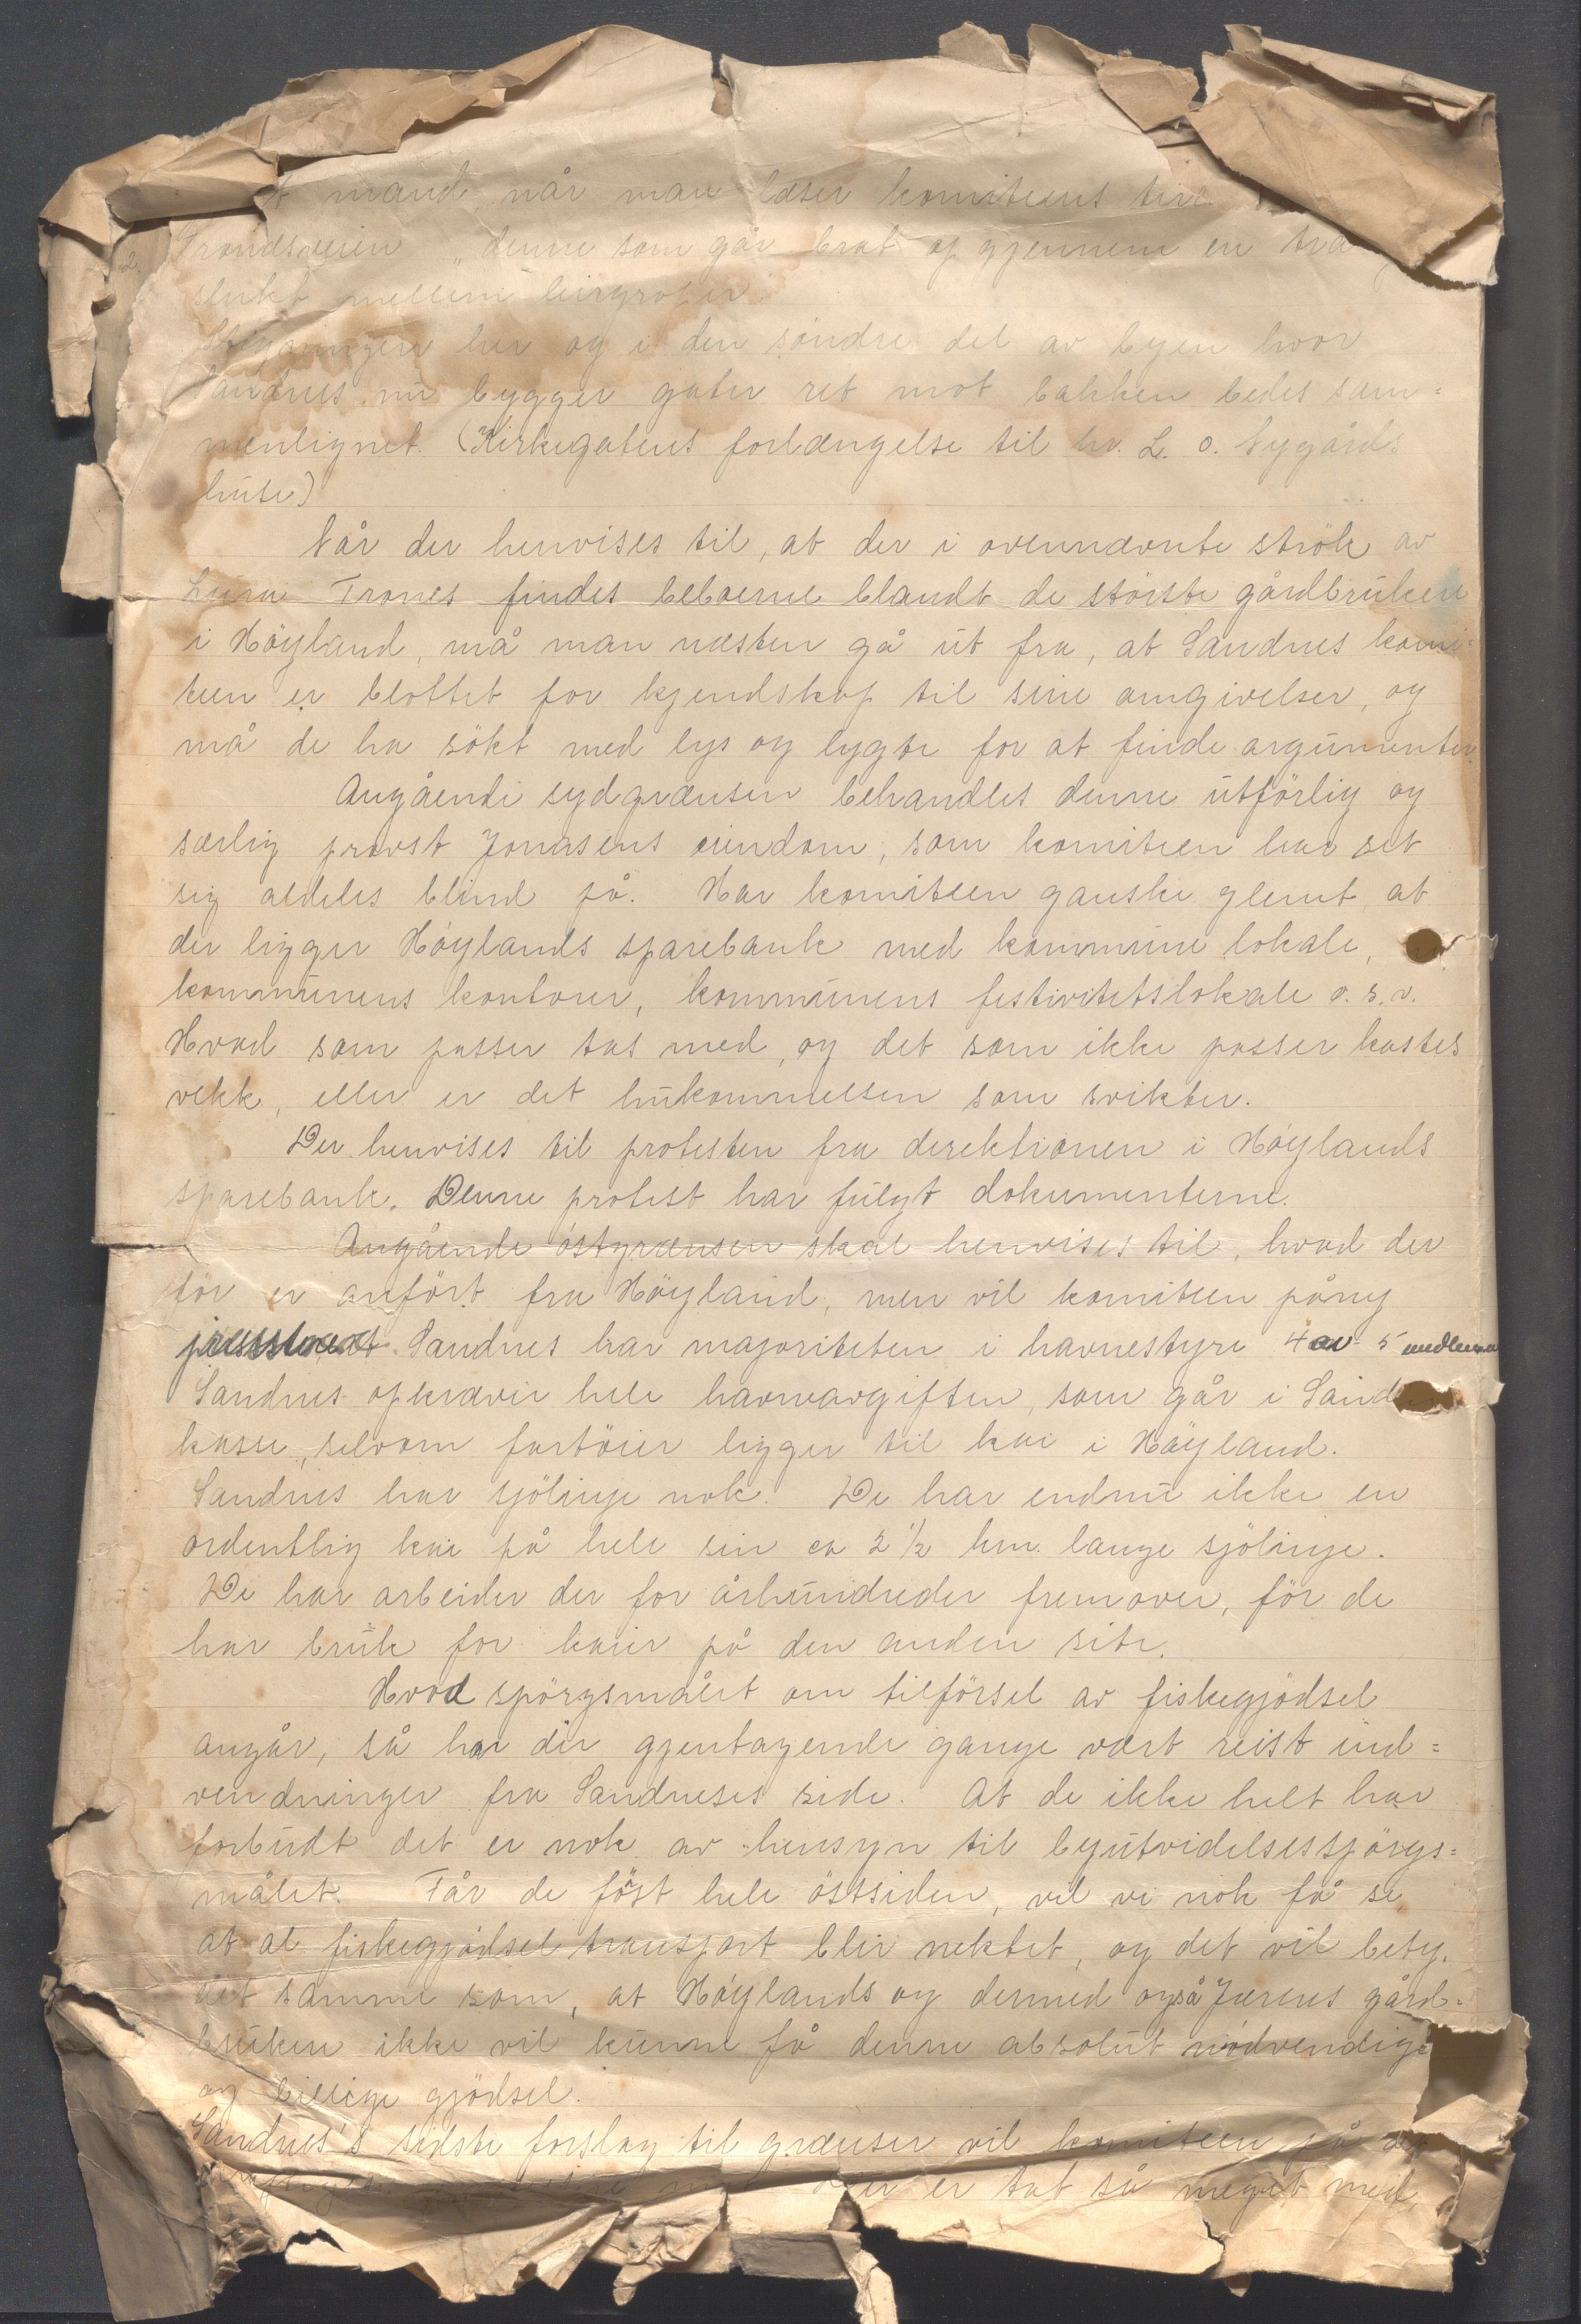 mand, når man læser komiteens
Tronesveien „denne som går brat op gjennem en
slukt mellem lergroper".
Stigningen her og i den søndre del av byen hvor
Sandnes nu bygger gater ret mot bakken bedes sam=
menlignet. (Kirkegatens forlængelse til hr. L. O. Nygårds
huse)
Når der henvises til, at der i ovennævnte strök av
Lura Trones findes beboerne blandt de störste gårdbrukere
i Höyland, må man næsten gå ut fra, at Sandnes komi=
teen er blottet for kjendskap til sine omgivelser, og
må de ha sökt med lys og lygte for at finde argumenter.
Angående sydgrænsen behandles denne utförlig og
særlig provst Jonasens eiendom, som komiteen har set
sig aldeles blind på. Har komiteen ganske glemt, at
der ligger Höylands sparebank med kommune lokale,
kommunens kontorer, kommunens festivitetslokale o. s. v.
Hvad som passer tas med, og det som ikke passer kastes
vekk, eller er det hukommelsen som svikter.
Der henvises til protesten fra direktionen i Höylands
sparebank. Denne protest har fulgt dokumenterne.
Angående östgrænsen skal henvises til, hvad der
för er anfört fra Höyland, men vil komiteen påny
at Sandnes har majoriteten i havnestyre 4 av 5 medlemmer
Sandnes opkræver hele havneavgiften, som går i Sand
kasse, selvom fartöier ligger til kai i Höyland.
Sandnes har sjölinje nok. De har endnu ikke en
ordentlig kai på hele sin ca 2 ½ km. lange sjölinje.
De har arbeider der for århundreder fremover, för de
har bruk for kaier på den anden side.
Hvad spörgsmålet om tilförsel av fiskegjödsel
angår, så har der gjentagende gange vært reist ind=
vendninger fra Sandneses side. At de ikke helt har
forbudt det er nok av hensyn til byutvidelsesspörgs=
målet. Får de först hele östsiden, vil vi nok få se
at al fiskegjödsel transport blir nektet, og det vil bety.
det samme som, at Höylands og dermed også Jærens gård=
brukere ikke vil kunne få denne absolut nödvendige
og billige gjödsel.
Sandnes's sidste forslag til grænser vil komiteen på
der er tat så meget med,